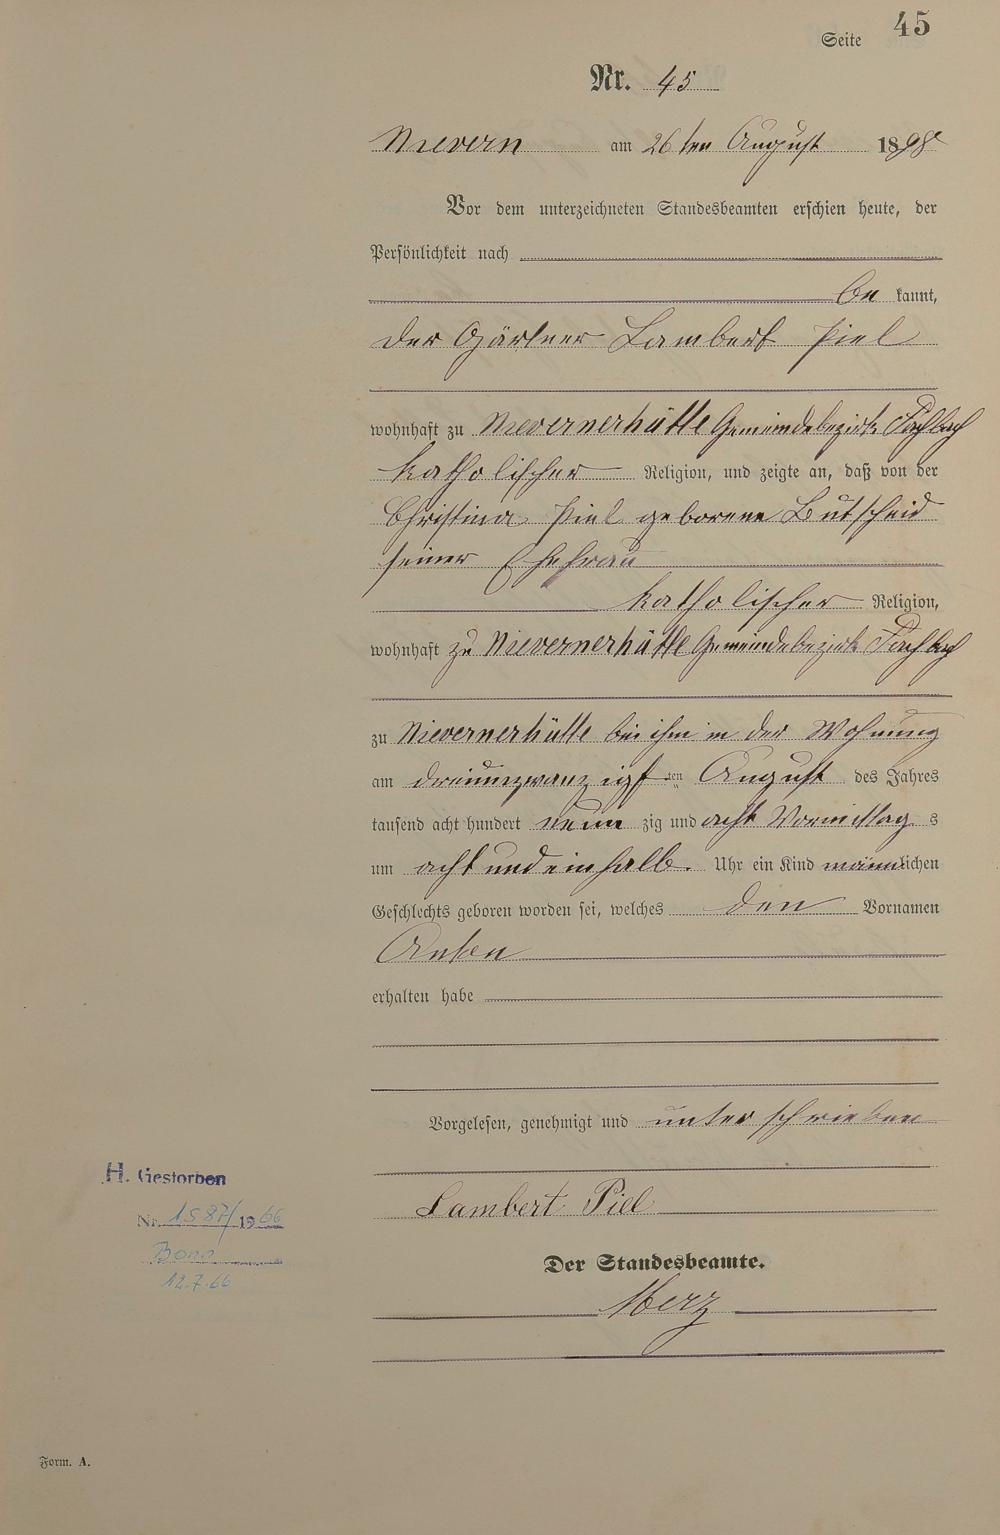 Seite 45
Nr. 45
Nievern am 26ten August 1898
Vor dem unterzeichneten Standesbeamten erschien heute, der
Persönlichkeit nach
be kannt,
der Gärtner Lambert Piel
wohnhaft zu Nievernerhütte Gemeindebezirk Fachbach
katholischer Religion, und zeigte an, daß von der
Christina Piel geborene Butscheid
seiner Ehefrau
katholischer Religion,
wohnhaft zu Nievernerhütte Gemeindebezirk Fachbach
zu Nievernerhütte bei ihm in der Wohnung
am dreiundzwanzigsten August des Jahres
tausend acht hundert neun zig und acht Vormittag s
um acht und ein halb Uhr ein Kind männlichen
Geschlechts geboren worden sei, welches den Vornamen
Anton
erhalten habe
Vorgelesen, genehmigt und unterschrieben
Lambert Piel
Der Standesbeamte.
Merz
H. Gestorben
Nr. 1587/1966
Bonn
12.7.66
Form. A.